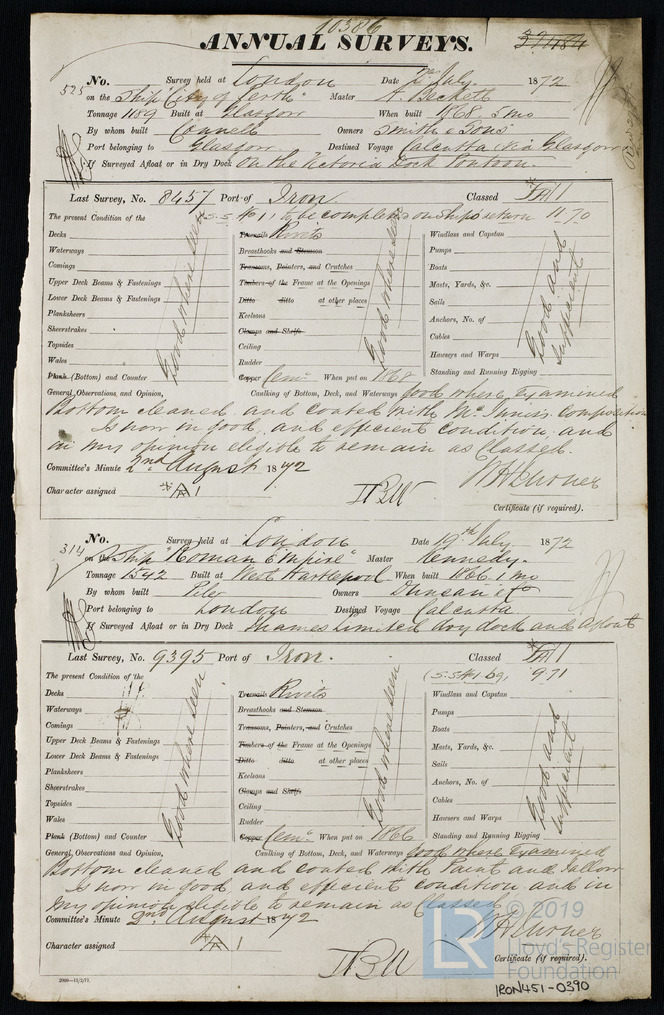 10386
ANNUAL SURVEYS.
No. 525 Survey held at London Date 2nd July 1872
on the Ship "City of Perth" Master A. Beckett
Tonnage 1189 Built at Glasgow When built 1868. 5 mo
By whom built Connell Owners Smith & Sons
Port belonging to Glasgow Destined Voyage Calcutta via Glasgow
If Surveyed Afloat or in Dry Dock On the Victoria Dock Pontoon.
Last Survey, No. 8457 Port of Iron. Classed
The present Condition of the (S.S. No 1) to be completed on ships return 11.70
Decks Treenails Rivets Windlass and Capstan
Waterways Breasthooks and Stemson Pumps
Comings Transoms, Pointers, and Crutches Boats
Upper Deck Beams & Fastenings Timbers of the Frame at the Openings Masts, Yards, &c.
Lower Deck Beams & Fastenings Ditto ditto at other places Sails
Planksheers Keelsons Anchors, No. of
Sheerstrakes Clamps and Shelfs Cables
Topsides Ceiling Hawsers and Warps
Wales Rudder Standing and Running Rigging
Plank (Bottom) and Counter Copper Cemt When put on 1868
Good where seen
Good where seen
Good and sufficient
General, Observations and Opinion, Caulking of Bottom, Deck, and Waterways Good where Examined
Bottom cleaned and coated with McInnes composition
Is now in good and efficient condition and
in my opinion eligible to remain as Classed.
Committee's Minute 2nd August 1872
Character assigned A 1
Certificate (if required).
No. 314 Survey held at London Date 19th July 1872
on the Ship "Roman Empire" Master Kennedy.
Tonnage 1542 Built at West Hartlepool When built 1866. 1 mo
By whom built Pile Owners Duncan & Co
Port belonging to London Destined Voyage Calcutta
If Surveyed Afloat or in Dry Dock Thames Limited dry dock and afloat
Last Survey, No. 9395 Port of Iron. Classed
The present Condition of the 9.71
Decks Treenails Rivets Windlass and Capstan
Waterways Breasthooks and Stemson Pumps
Comings Transoms, Pointers, and Crutches Boats
Upper Deck Beams & Fastenings Timbers of the Frame at the Openings Masts, Yards, &c.
Lower Deck Beams & Fastenings Ditto ditto at other places Sails
Planksheers Keelsons Anchors, No. of
Sheerstrakes Clamps and Shelfs Cables
Topsides Ceiling Hawsers and Warps
Wales Rudder Standing and Running Rigging
Plank (Bottom) and Counter Copper Cemt When put on 1866
Good where seen
Good where seen
Good and sufficient
General, Observations and Opinion, Caulking of Bottom, Deck, and Waterways Good where Examined
Bottom cleaned and coated with Paint and Tallow
Is now in good and efficient condition and in
my opinion eligible to remain as Classed
Committee's Minute 2nd August 1872
Character assigned A 1
Certificate (if required).
LR © 2019
Lloyd's Register
Foundation
IRON451-0390